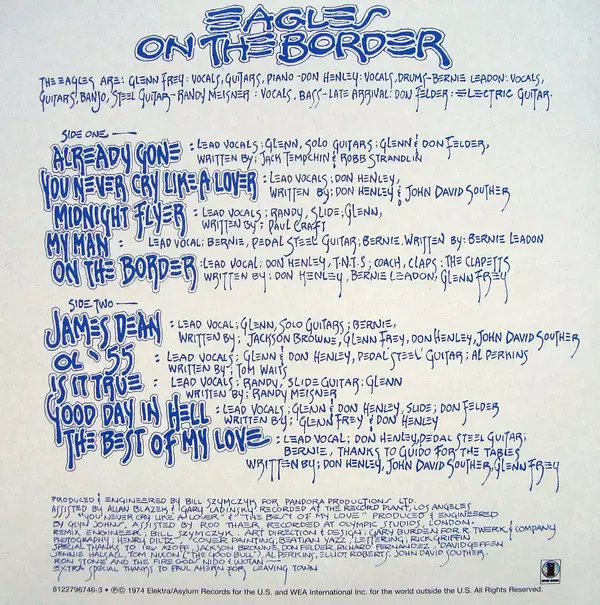 EAGLES
ON THE BORDER
THE EAGLES ARE: GLENN FREY: VOCALS, GUITARS, PIANO - DON HENLEY: VOCALS, DRUMS - BERNIE LEADON: VOCALS,
GUITARS, BANJO, STEEL GUITAR - RANDY MEISNER: VOCALS, BASS - LATE ARRIVAL: DON FELDER: ELECTRIC GUITAR.
SIDE ONE —
ALREADY GONE : LEAD VOCALS; GLENN, SOLO GUITARS; GLENN & DON FELDER,
WRITTEN BY; JACK TEMPCHIN & ROBB STRANDLIN
YOU NEVER CRY LIKE A LOVER : LEAD VOCALS; DON HENLEY,
WRITTEN BY: DON HENLEY & JOHN DAVID SOUTHER
MIDNIGHT FLYER : LEAD VOCALS; RANDY, SLIDE; GLENN,
WRITTEN BY: PAUL CRAFT
MY MAN : LEAD VOCAL: BERNIE, PEDAL STEEL GUITAR; BERNIE. WRITTEN BY: BERNIE LEADON
ON THE BORDER : LEAD VOCAL: DON HENLEY, T.N.T.S; COACH, CLAPS: THE CLAPETTS
WRITTEN BY: DON HENLEY, BERNIE LEADON, GLENN FREY
SIDE TWO —
JAMES DEAN : LEAD VOCAL; GLENN, SOLO GUITARS; BERNIE,
WRITTEN BY; JACKSON BROWNE, GLENN FREY, DON HENLEY, JOHN DAVID SOUTHER
OL' '55 : LEAD VOCALS: GLENN & DON HENLEY, PEDAL STEEL GUITAR; AL PERKINS
WRITTEN BY; TOM WAITS
IS IT TRUE : LEAD VOCALS; RANDY, SLIDE GUITAR; GLENN
WRITTEN BY; RANDY MEISNER
GOOD DAY IN HELL : LEAD VOCALS; GLENN & DON HENLEY, SLIDE; DON FELDER
WRITTEN BY; GLENN FREY & DON HENLEY
THE BEST OF MY LOVE : LEAD VOCAL; DON HENLEY, PEDAL STEEL GUITAR;
BERNIE, THANKS TO GUIDO FOR THE TABLES
WRITTEN BY; DON HENLEY, JOHN DAVID SOUTHER, GLENN FREY
PRODUCED & ENGINEERED BY BILL SZYMCZYK FOR PANDORA PRODUCTIONS LTD.
ASSISTED BY ALLAN BLAZEK & GARY LADINSKY. RECORDED AT THE RECORD PLANT, LOS ANGELES
"YOU NEVER CRY LIKE A LOVER" & "THE BEST OF MY LOVE" PRODUCED & ENGINEERED
BY GLYN JOHNS, ASSISTED BY ROD THAER, RECORDED AT OLYMPIC STUDIOS, LONDON.
REMIX ENGINEER; BILL SZYMCZYK. ART DIRECTION & DESIGN: GARY BURDEN FOR R. TWERK & COMPANY
PHOTOGRAPHY; HENRY DILTZ. COVER PAINTING; BEATIAN YAZZ, LETTERING; RICK GRIFFIN
SPECIAL THANKS TO IRV AZOFF, JACKSON BROWNE, DON FELDER, RICHARD FERNANDEZ, DAVID GEFFEN
JENNIE HALSALL, TOM NIXON ("THE GOOD BULL") AL PERKINS, ELLIOT ROBERTS, JOHN DAVID SOUTHER.
RON STONE AND THE FIRE GODS NIDO & WOTAN—
EXTRA SPECIAL THANKS TO PAUL AHERN FOR LEAVING TOWN
8122796746-3 • ℗© 1974 Elektra/Asylum Records for the U.S. and WEA International Inc. for the world outside the U.S. All Rights Reserved.